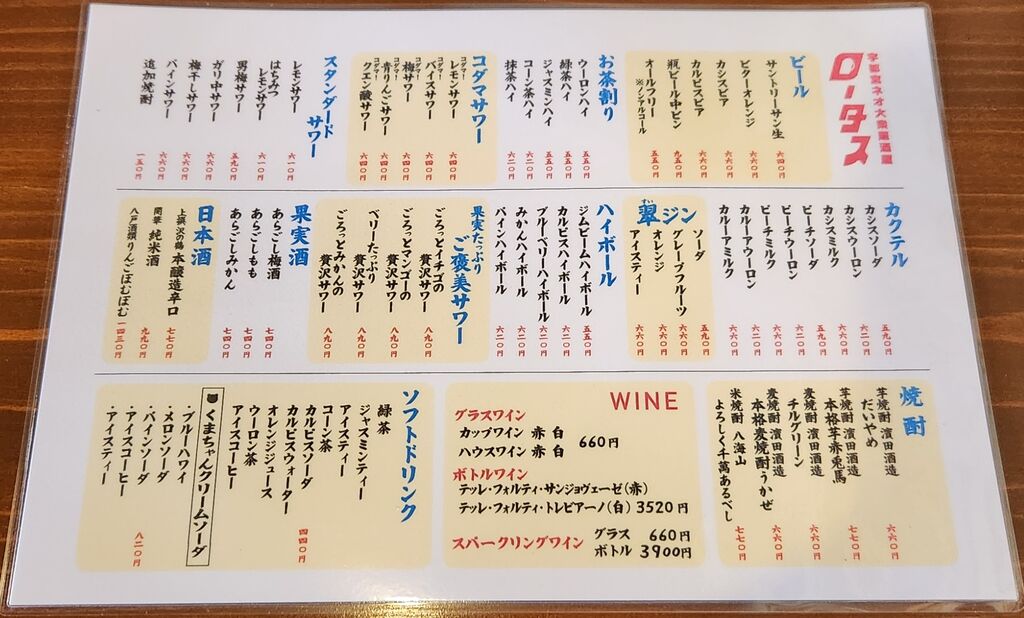 宇都宮ネオ大衆居酒屋
ロータス
ビール
サントリーサン生 六四〇円
ビターオレンジ 六六〇円
カシスビア 六六〇円
カルピスビア 六六〇円
瓶ビール中ビン 九五〇円
オールフリー 五五〇円
※ノンアルコール
お茶割り
ウーロンハイ 五五〇円
緑茶ハイ 五五〇円
ジャスミンハイ 五五〇円
コーン茶ハイ 六二〇円
抹茶ハイ 六二〇円
コダマサワー
コダマ！レモンサワー 六四〇円
コダマ！バイスサワー 六四〇円
コダマ！梅サワー 六四〇円
コダマ！青りんごサワー 六四〇円
コダマ！クエン酸サワー 六四〇円
スタンダードサワー
レモンサワー 六一〇円
はちみつレモンサワー 六一〇円
男梅サワー 五九〇円
ガリ中サワー 六六〇円
梅干しサワー 六六〇円
パインサワー 六六〇円
追加焼酎 一五〇円
カクテル
カシスソーダ 五九〇円
カシスウーロン 六二〇円
カシスミルク 六六〇円
ピーチソーダ 五九〇円
ピーチウーロン 六二〇円
ピーチミルク 六六〇円
カルーアウーロン 六二〇円
カルーアミルク 六六〇円
翠ジン
すい
ソーダ 五九〇円
グレープフルーツ 六六〇円
オレンジ 六六〇円
アイスティー 六六〇円
ハイボール
ジムビームハイボール 五五〇円
カルピスハイボール 六二〇円
ブルーベリーハイボール 六二〇円
みかんハイボール 六二〇円
パインハイボール 六二〇円
果実たっぷり
ご褒美サワー
ごろっとイチゴの贅沢サワー 八九〇円
ごろっとマンゴーの贅沢サワー 八九〇円
ベリーたっぷり贅沢サワー 八九〇円
ごろっとみかんの贅沢サワー 八九〇円
果実酒
あらごし梅酒 七四〇円
あらごしもも 七四〇円
あらごしみかん 七四〇円
日本酒
上撰 沢の鶴 本醸造辛口 七七〇円
開華 純米酒 九九〇円
八戸酒類 りんごぽむぽむ 一四三〇円
焼酎
芋焼酎 濵田酒造
だいやめ 六六〇円
芋焼酎 濵田酒造
本格芋赤兎馬 七七〇円
麦焼酎 濵田酒造
チルグリーン 六六〇円
麦焼酎 濵田酒造
本格麦焼酎うかぜ 六六〇円
米焼酎 八海山
よろしく千萬あるべし 七七〇円
WINE
グラスワイン
カップワイン 赤 白
ハウスワイン 赤 白 660円
ボトルワイン
テッレ・フォルティ・サンジョヴェーゼ(赤)
テッレ・フォルティ・トレビアーノ(白) 3520円
スパークリングワイン グラス 660円
ボトル 3900円
ソフトドリンク
緑茶
ジャスミンティー
アイスティー
コーン茶
カルピスソーダ
カルピスウォーター
オレンジジュース
ウーロン茶
アイスコーヒー
四四〇円
くまちゃんクリームソーダ
・ブルーハワイ
・メロンソーダ
・パインソーダ
・アイスコーヒー
・アイスティー
八二〇円